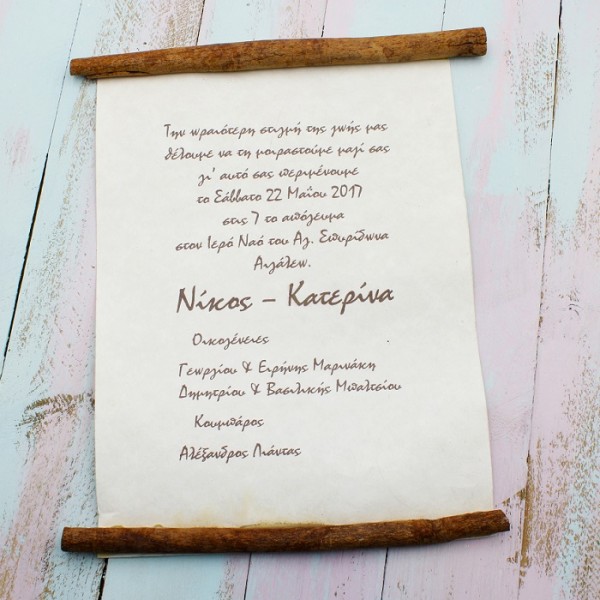 Την ωραιότερη στιγμή της ζωής μας
θέλουμε να τη μοιραστούμε μαζί σας
γι' αυτό σας περιμένουμε
το Σάββατο 22 Μαΐου 2017
στις 7 το απόγευμα
στον Ιερό Ναό του Αγ. Σπυρίδωνα
Αιγάλεω.
Νίκος – Κατερίνα
Οικογένειες
Γεωργίου & Ειρήνης Μαρινάκη
Δημητρίου & Βασιλικής Μπαλτσίου
Κουμπάρος
Αλέξανδρος Λιάντας